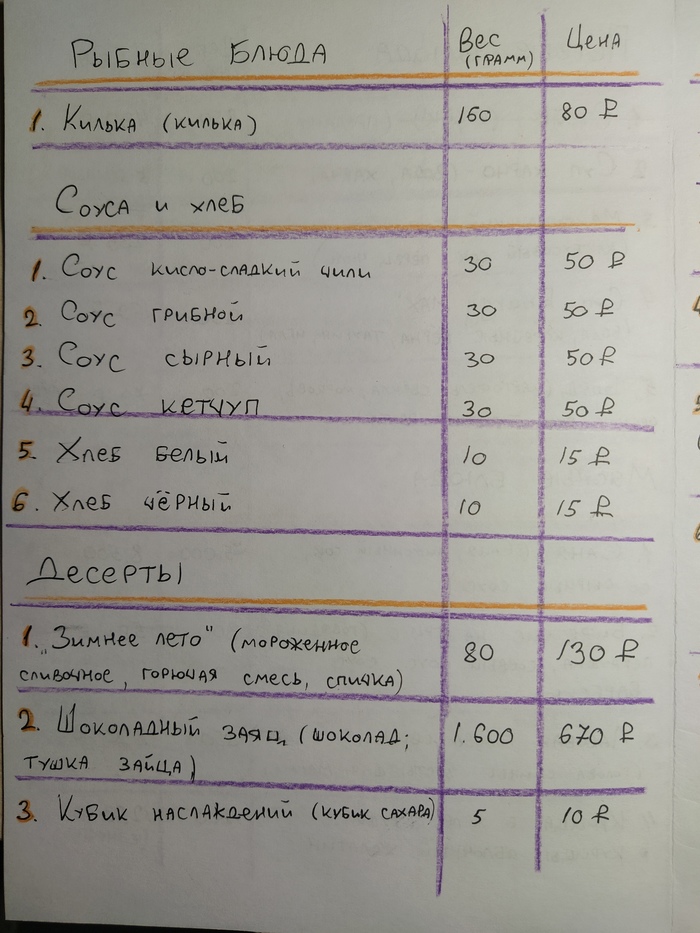 Рыбные блюда Вес (грамм) Цена
1. Килька (килька) 160 80 ₽
Соуса и хлеб
1. Соус кисло-сладкий чили 30 50 ₽
2. Соус грибной 30 50 ₽
3. Соус сырный 30 50 ₽
4. Соус кетчуп 30 50 ₽
5. Хлеб белый 10 15 ₽
6. Хлеб чёрный 10 15 ₽
Десерты
1. „Зимнее лето" (мороженное 80 130 ₽
сливочное, горючая смесь, спичка)
2. Шоколадный заяц (шоколад; 1.600 670 ₽
тушка зайца)
3. Кубик наслаждений (кубик сахара) 5 10 ₽